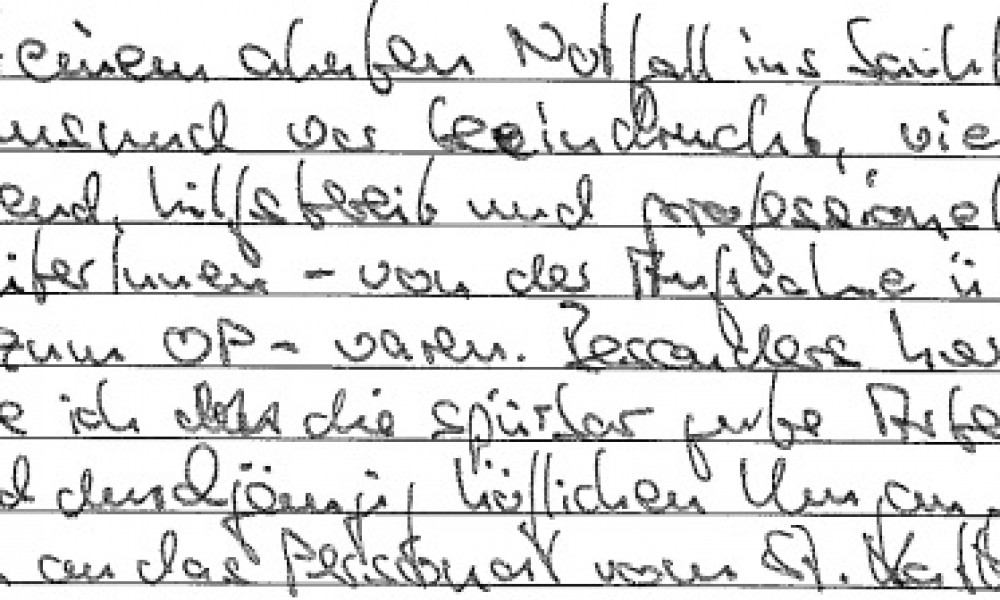 einem akuten Notfall ins
und war beeindruckt, wie
end, hilfsbereit und professionel
iterInnen - von der Aufnahme ü
zum OP - waren. Besonders her
e ich die spürbar gute Arbe
d durchgängig höflichen Umgan
an das Personal vom St.